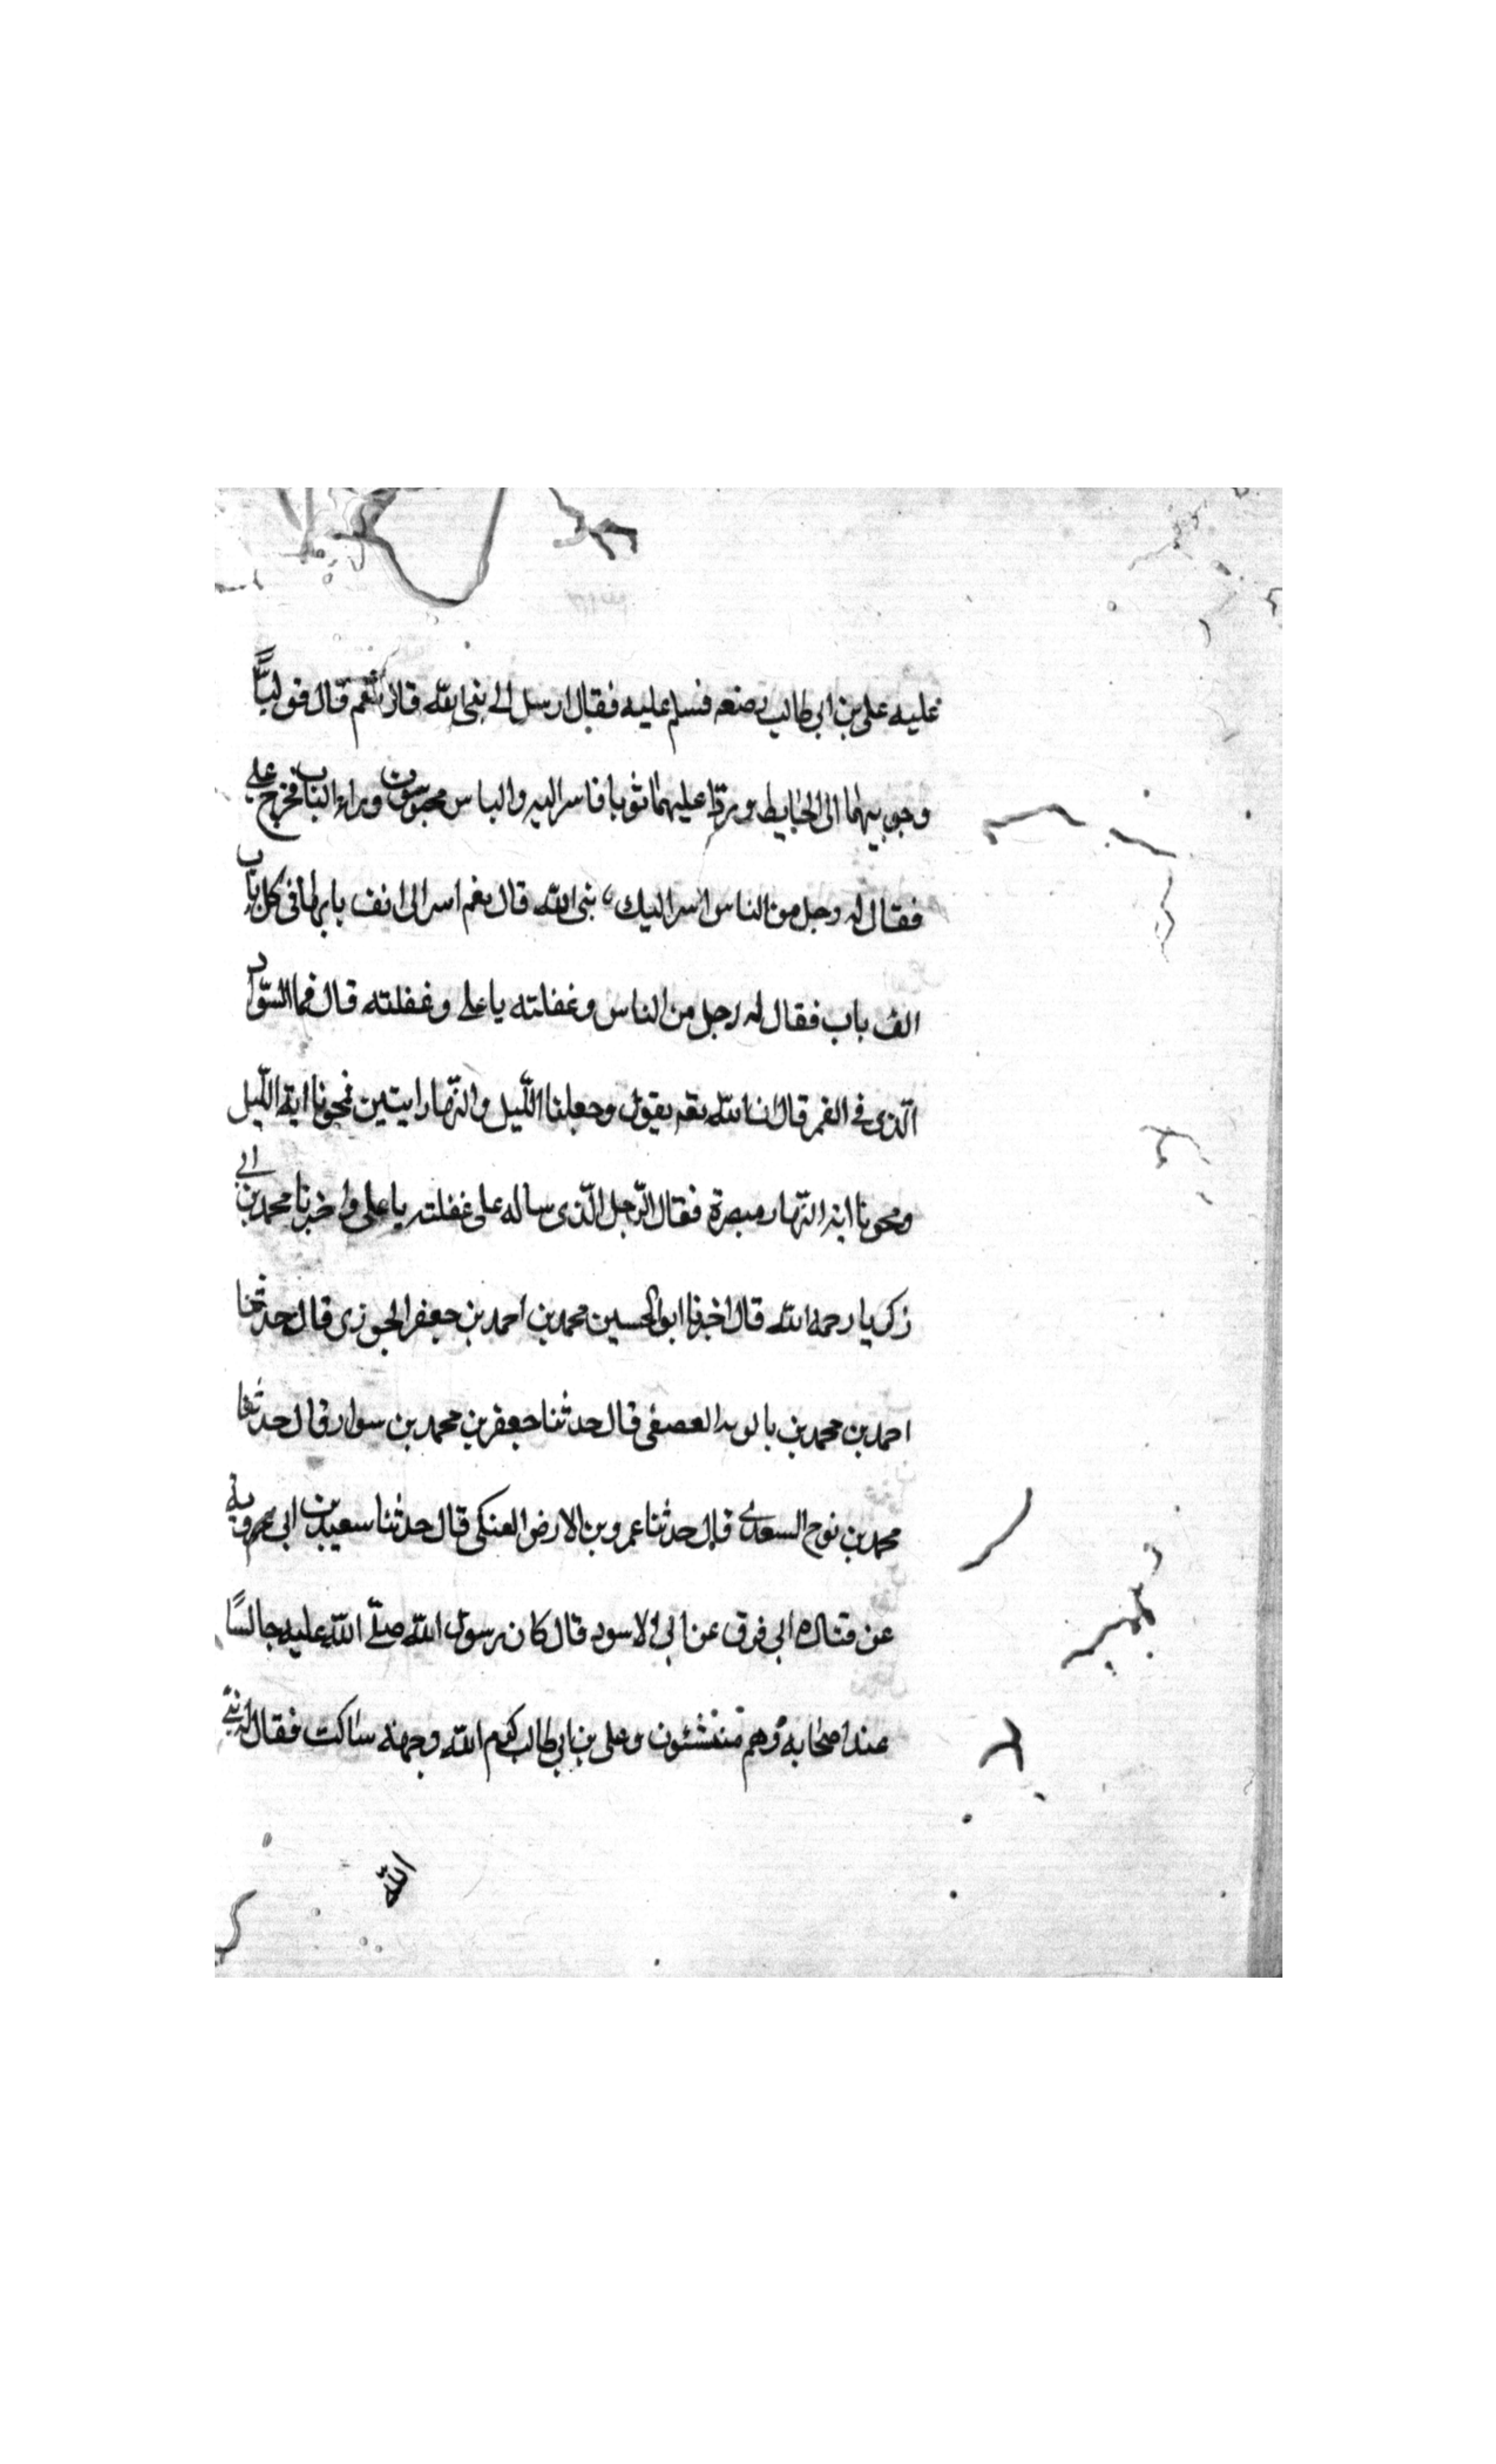 عليه علي بن ابي طالب رضعه فسلم عليه فقال ارسل الى بنى الله قال نعم قال فوليا
وجوبيهما الى الحايط وردا عليهما ثوبا فاسر اليه والناس محبوسون وراء الباب فخرج على
فقال له رجل من الناس اسر اليك نبى الله قال نعم اسر الى الف باب فى كل باب
الف باب فقال له رجل من الناس وغفلته يا على وغفلته قال فما السواد
الذى فى القمر قال ان الله تعه يقول وجعلنا الليل والنهار ايتين فمحونا اية الليل
ومحونا اية النهار مبصرة فقال الرجل الذى ساله على غفلته يا على واخبرنا محمد بن ابى
زكريا رحمه الله قال اخبرنا ابو الحسين محمد بن احمد بن جعفر الجوزى قال حدثنا
احمد بن محمد بن بالويه العصفى قال حدثنا جعفر بن محمد بن سوار قال حدثنا
محمد بن نوح السعدى قال حدثنا عمرو بن الارض العنكى قال حدثنا سعيد بن ابى عروبة
عن قتاده ابى فرق عن ابى الاسود قال كان رسول الله صلى الله عليه جالسًا
عند اصحابه وهم منتشئون وعلى بن ابى طالب كرم الله وجهه ساكت فقال له نبى
الله